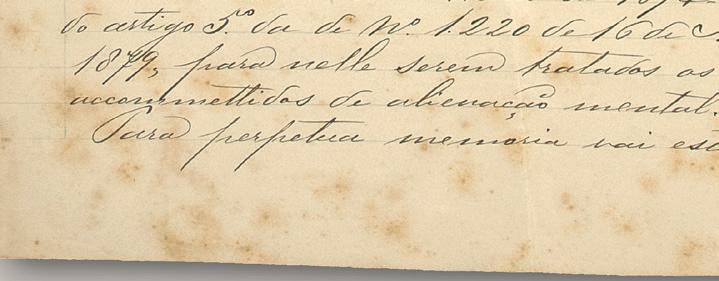 do artigo 5.º da de N.º 1.220 de 16 de
1879, para nelle serem tratados os
accommettidos de alienação mental.
Para perpetua memoria vai est